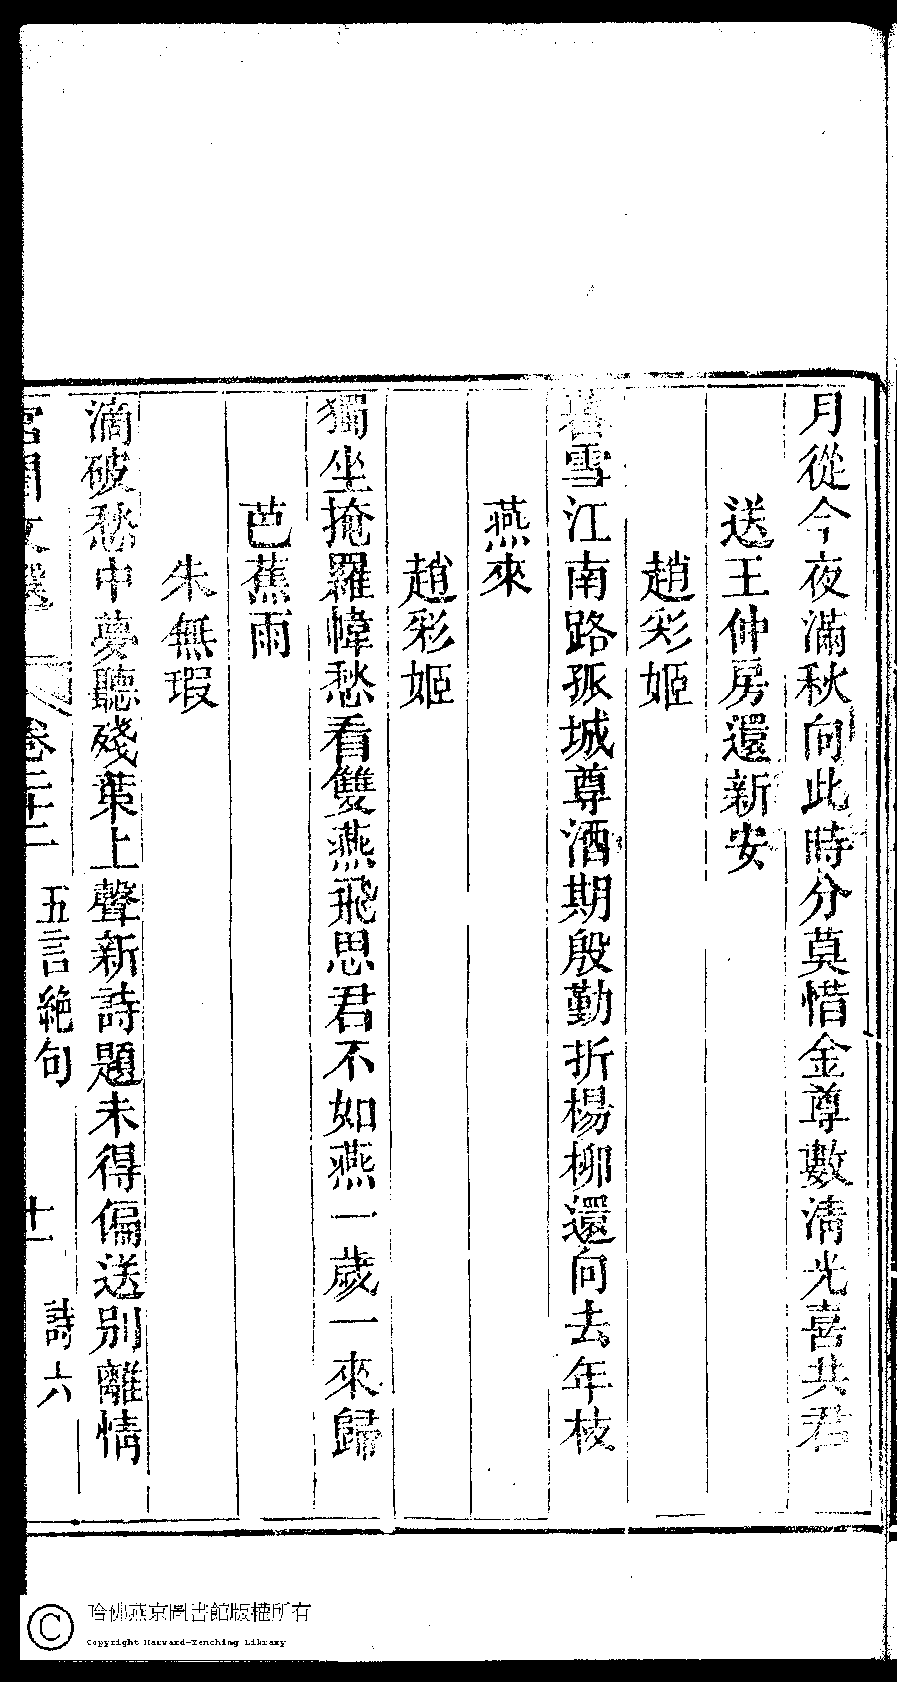 月從今夜滿秋向此時分莫惜金尊數清光喜共君
送王仲房還新安
趙彩姬
暮雪江南路孤城尊酒期殷勤折楊柳還向去年枝
燕來
趙彩姬
獨坐掩羅幃愁看雙燕飛思君不如燕一歲一來歸
芭蕉雨
朱無瑕
滴破愁中夢聽殘葉上聲新詩題未得偏送別離情
宮閨文選 卷二十二 五言絕句 十一 詩六
哈佛燕京圖書館版權所有
Copyright Harvard-Yenching Library